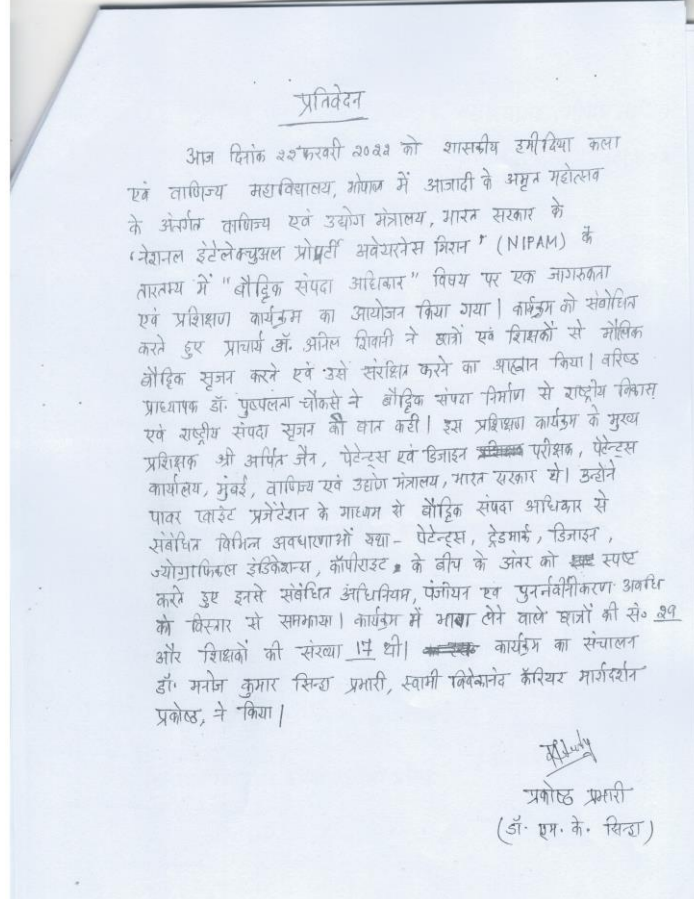 प्रतिवेदन
आज दिनांक २२ फरवरी २०२२ को शासकीय हमीदिया कला
एवं वाणिज्य महाविद्यालय, भोपाल में आजादी के अमृत महोत्सव
के अंतर्गत वाणिज्य एवं उद्योग मंत्रालय, भारत सरकार के
'नेशनल इंटेलेक्चुअल प्रोपर्टी अवेयरनेस मिशन' (NIPAM) के
तारतम्य में "बौद्धिक संपदा अधिकार" विषय पर एक जागरूकता
एवं प्रशिक्षण कार्यक्रम का आयोजन किया गया। कार्यक्रम को संबोधित
करते हुए प्राचार्य डॉ. अनिल शिवानी ने छात्रों एवं शिक्षकों से मौलिक
बौद्धिक सृजन करने एवं उसे संरक्षित करने का आह्वान किया। वरिष्ठ
प्राध्यापक डॉ. पुष्पलता चौकसे ने बौद्धिक संपदा निर्माण से राष्ट्रीय विकास
एवं राष्ट्रीय संपदा सृजन की बात कही। इस प्रशिक्षण कार्यक्रम के मुख्य
प्रशिक्षक श्री अर्पित जैन, पेटेन्ट्स एवं डिजाइन परीक्षक, पेटेन्ट्स
कार्यालय, मुंबई, वाणिज्य एवं उद्योग मंत्रालय, भारत सरकार थे। उन्होंने
पावर प्वाइंट प्रजेंटेशन के माध्यम से बौद्धिक संपदा अधिकार से
संबंधित विभिन्न अवधारणाओं यथा- पेटेन्ट्स, ट्रेडमार्क, डिजाइन,
ज्योग्राफिकल इंडिकेशन्स, कॉपीराइट, के बीच के अंतर को स्पष्ट
करते हुए इनसे संबंधित अधिनियम, पंजीयन एवं पुनर्नवीनीकरण अवधि
को विस्तार से समझाया। कार्यक्रम में भाग लेने वाले छात्रों की सं० 29
और शिक्षकों की संख्या 17 थी। कार्यक्रम का संचालन
डॉ. मनोज कुमार सिन्हा प्रभारी, स्वामी विवेकानंद कॅरियर मार्गदर्शन
प्रकोष्ठ, ने किया।
प्रकोष्ठ प्रभारी
(डॉ. एम. के. सिन्हा)